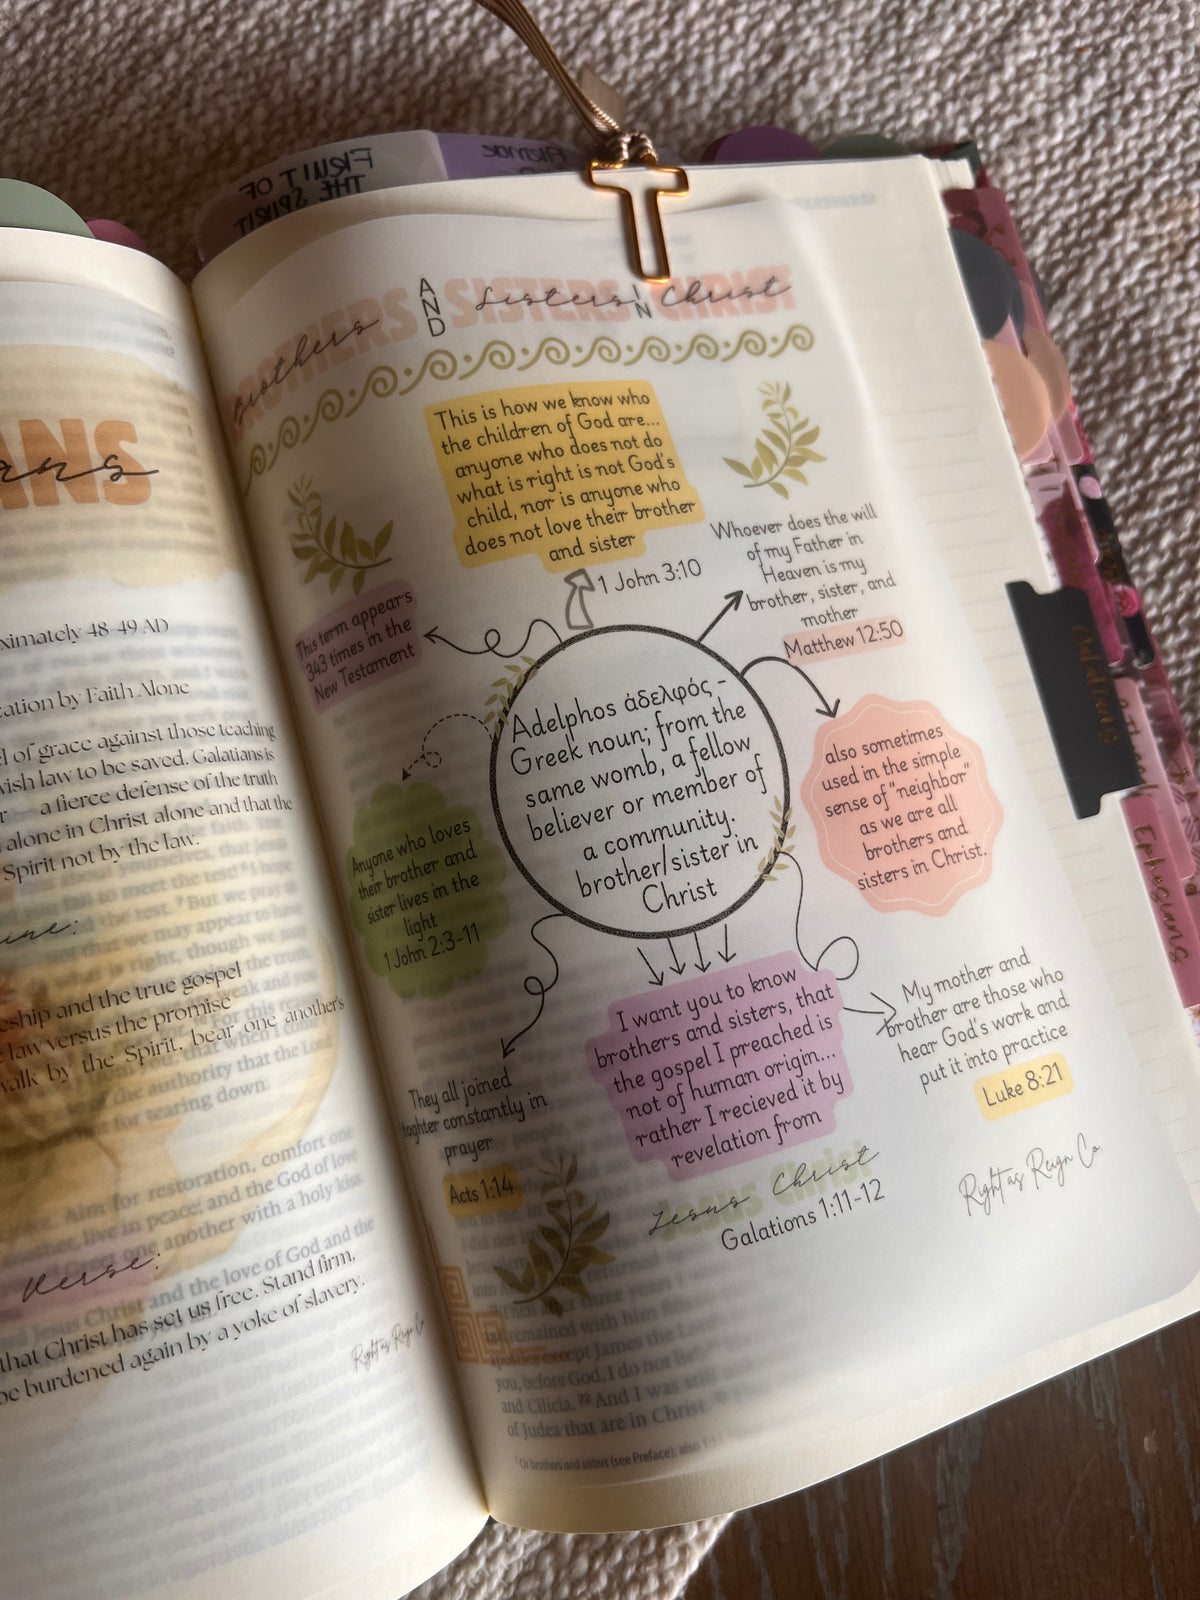 FRUIT OF
THE SPIRIT
BROTHERS AND SISTERS IN CHRIST
Brothers
Sisters
Christ
This is how we know who
the children of God are...
anyone who does not do
what is right is not God's
child, nor is anyone who
does not love their brother
and sister
1 John 3:10
Whoever does the will
of my Father in
Heaven is my
brother, sister, and
mother
Matthew 12:50
This term appears
343 times in the
New Testament
Adelphos ἀδελφός -
Greek noun; from the
same womb, a fellow
believer or member of
a community.
brother/sister in
Christ
also sometimes
used in the simple
sense of "neighbor"
as we are all
brothers and
sisters in Christ.
Anyone who loves
their brother and
sister lives in the
light
1 John 2:3-11
They all joined
toghter constantly in
prayer
Acts 1:14
I want you to know
brothers and sisters, that
the gospel I preached is
not of human origin...
rather I recieved it by
revelation from
Jesus Christ
Jesus Christ
Galations 1:11-12
My mother and
brother are those who
hear God's work and
put it into practice
Luke 8:21
Right as Reign Co
remained with him
except James the
you, before God, I do not
and Cilicia. 22 And I was still
of Judea that are in Christ.
Or brothers and sisters (see Preface); also
ANS
ans
ximately 48-49 AD
cation by Faith Alone
el of grace against those teaching
vish law to be saved. Galatians is
r a fierce defense of the truth
alone in Christ alone and that the
Spirit not by the law.
une:
eship and the true gospel
law versus the promise
valk by the Spirit, bear one another's
the authority that the Lord
for tearing down.
Aim for restoration, comfort one
live in peace; and the God of love
one another with a holy kiss
Verse:
Jesus Christ and the love of God and the
that Christ has set us free. Stand firm,
be burdened again by a yoke of slavery.
Right as Reign Co
Galatians
Ephesians